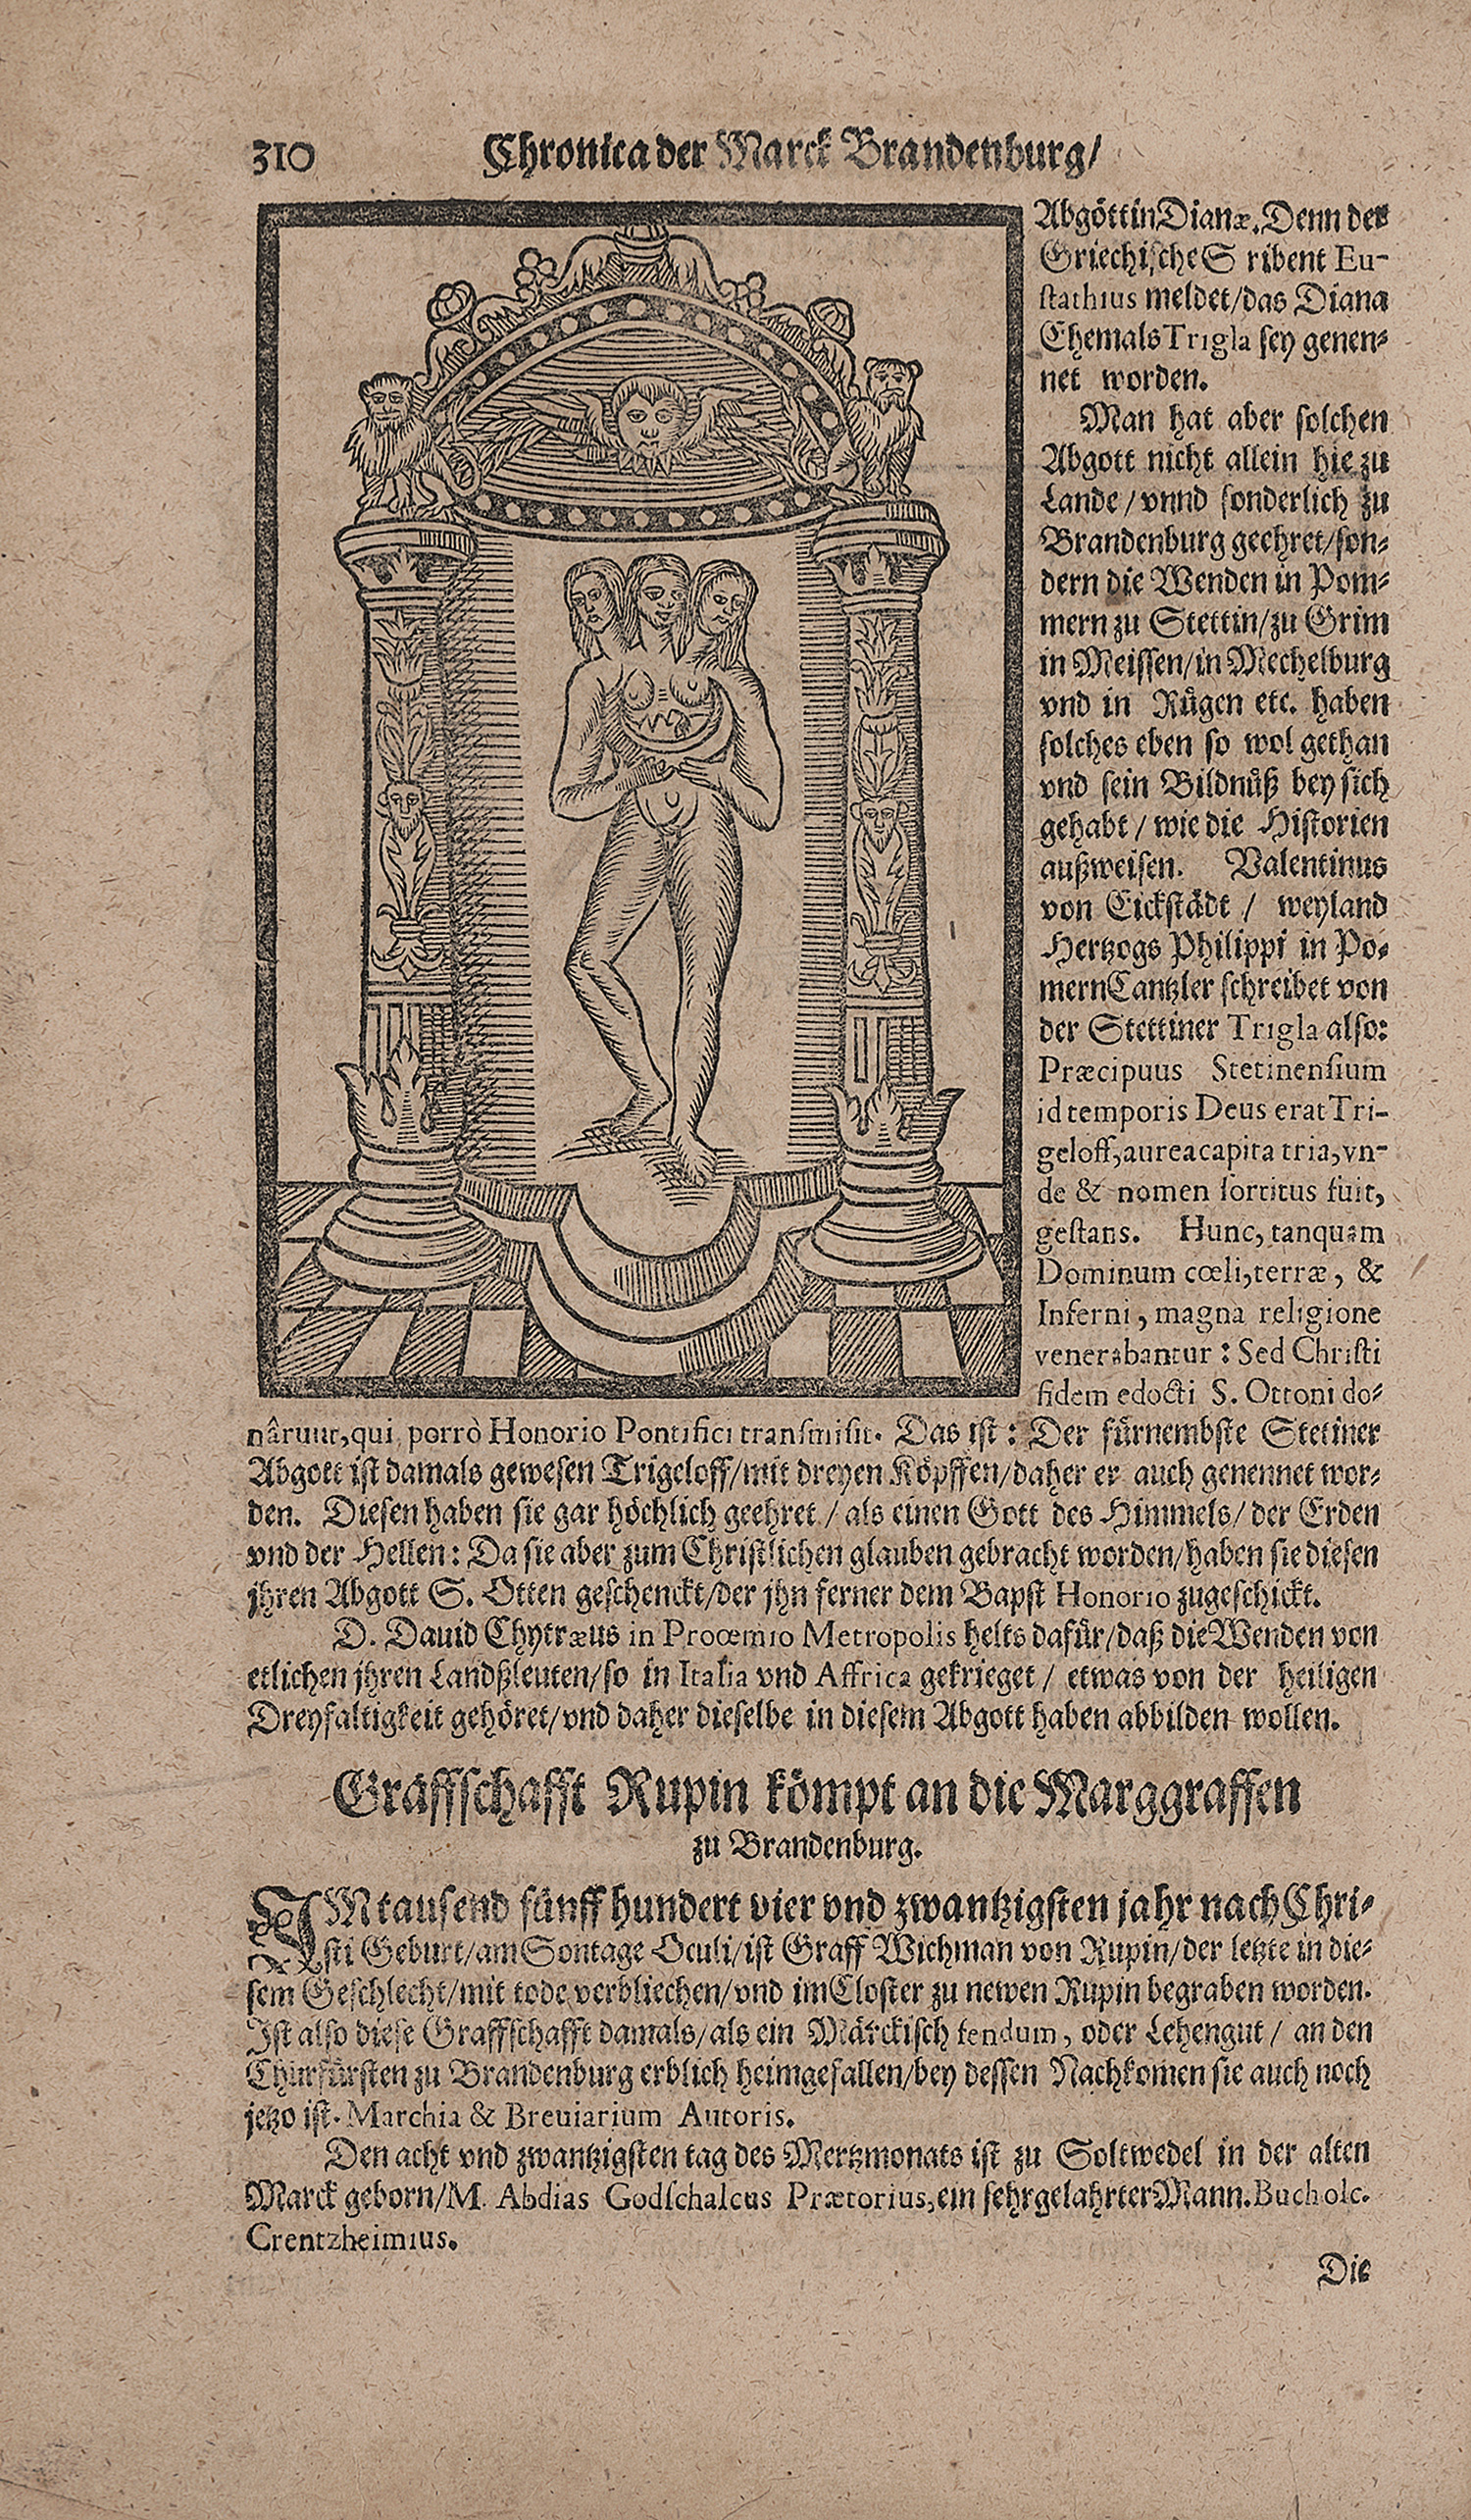 310 Chronica der Marck Brandenburg/
Abgöttin Dianæ. Denn der
Griechische S ribent Eu-
stathius meldet/das Diana
Ehemals Trigla sey genen-
net worden.
Man hat aber solchen
Abgott nicht allein hie zu
Lande/vnnd sonderlich zu
Brandenburg geehret/son-
dern die Wenden in Pom-
mern zu Stettin/zu Grim
in Meissen/in Mechelburg
vnd in Rügen etc. haben
solches eben so wol gethan
vnd sein Bildnüß bey sich
gehabt/wie die Historien
außweisen. Valentinus
von Eickstädt/weyland
Hertzogs Philippi in Po-
mern Cantzler schreibet von
der Stettiner Trigla also:
Præcipuus Stetinensium
id temporis Deus erat Tri-
geloff, aurea capita tria, vn-
de & nomen sortitus fuit,
gestans. Hunc, tanquam
Dominum cœli, terræ, &
Inferni, magna religione
venerabantur: Sed Christi
fidem edocti S. Ottoni do-
nâruut, qui porrò Honorio Pontifici transmisit. Das ist: Der fürnembste Stetiner
Abgott ist damals gewesen Trigeloff/mit dreyen Köpffen/daher er auch genennet wor-
den. Diesen haben sie gar höchlich geehret/als einen Gott des Himmels/der Erden
vnd der Hellen: Da sie aber zum Christlichen glauben gebracht worden/haben sie diesen
jhren Abgott S. Otten geschenckt/der jhn ferner dem Bapst Honorio zugeschickt.
D. Dauid Chytræus in Proœmio Metropolis helts dafür/daß die Wenden von
etlichen jhren Landßleuten/so in Italia vnd Affrica gekrieget/etwas von der heiligen
Dreyfaltigkeit gehöret/vnd daher dieselbe in diesem Abgott haben abbilden wollen.
Graffschafft Rupin kömpt an die Marggraffen
zu Brandenburg.
IM tausend fünff hundert vier vnd zwantzigsten jahr nach Chri-
sti Geburt/am Sontage Oculi/ist Graff Wichman von Rupin/der letzte in die-
sem Geschlecht/mit tode verbliechen/vnd im Closter zu newen Rupin begraben worden.
Ist also diese Graffschafft damals/als ein Märckisch fendum, oder Lehengut/an den
Churfürsten zu Brandenburg erblich heimgefallen/bey dessen Nachkomen sie auch noch
jetzo ist. Marchia & Breuiarium Autoris.
Den acht vnd zwantzigsten tag des Mertzmonats ist zu Soltwedel in der alten
Marck geborn/M. Abdias Godschalcus Prætorius, ein sehr gelahrter Mann. Bucholc.
Crentzheimius.
Die